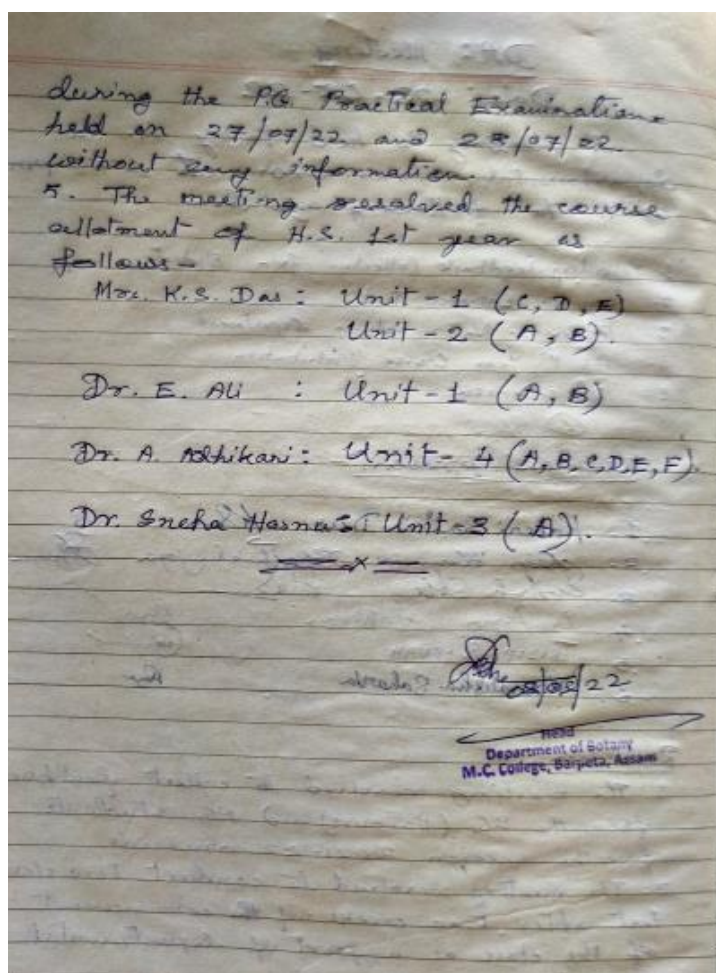 during the P.G. Practical Examination
held on 27/07/22 and 28/07/22
without any information.
5. The meeting resolved the course
allotment of H.S. 1st year as
follows -
Mrs. K.S. Das : Unit - 1 (C, D, E)
Unit - 2 (A, B).
Dr. E. Ali : Unit - 1 (A, B)
Dr. A. Adhikari : Unit - 4 (A, B, C, D, E, F).
Dr. Sneha Unit - 3 (A).
x
/22
Head
Department of Botany
M.C. College, Barpeta, Assam